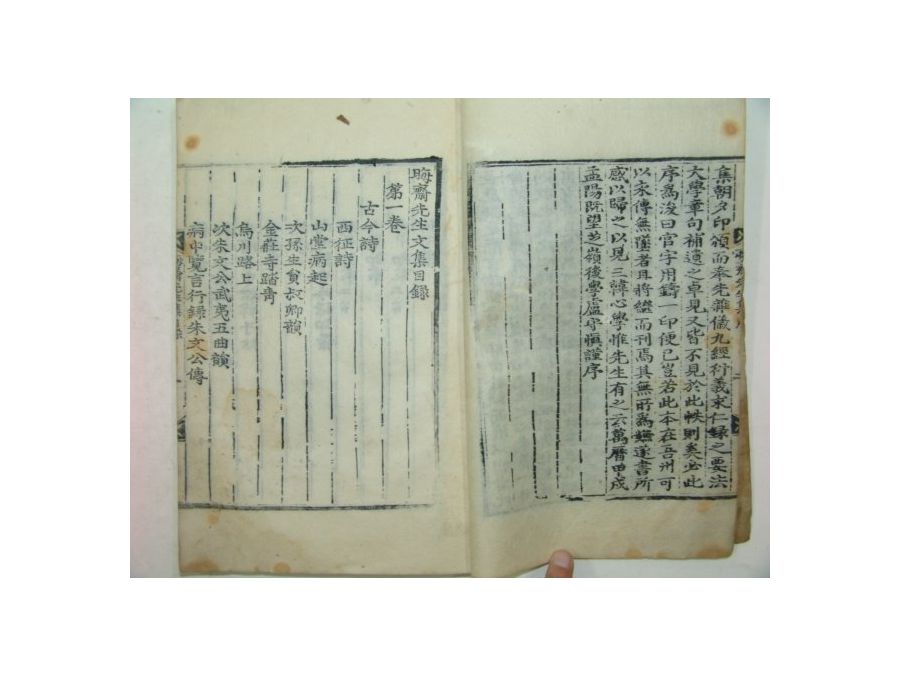 集朝夕印頒而奉先雜儀九經衍義求仁錄之要法
大學章句補遺之卓見又皆不見於此帙則奚必此
序為浚曰官字用鑄一印便已豈若此本在吾州可
以永傳無墜者耳將繼而刊焉其無所為無遂書所
感以歸之以見三諱心學惟先生有之云萬曆甲戌
孟陽旣望芝嶺後學盧守愼謹序
晦齋先生文集目錄
第一卷
古今詩
西征詩
山堂病起
次孫生員叔卿韻
金莊寺踏靑
烏川路上
次朱文公武夷五曲韻
病中覽言行錄朱文公傳